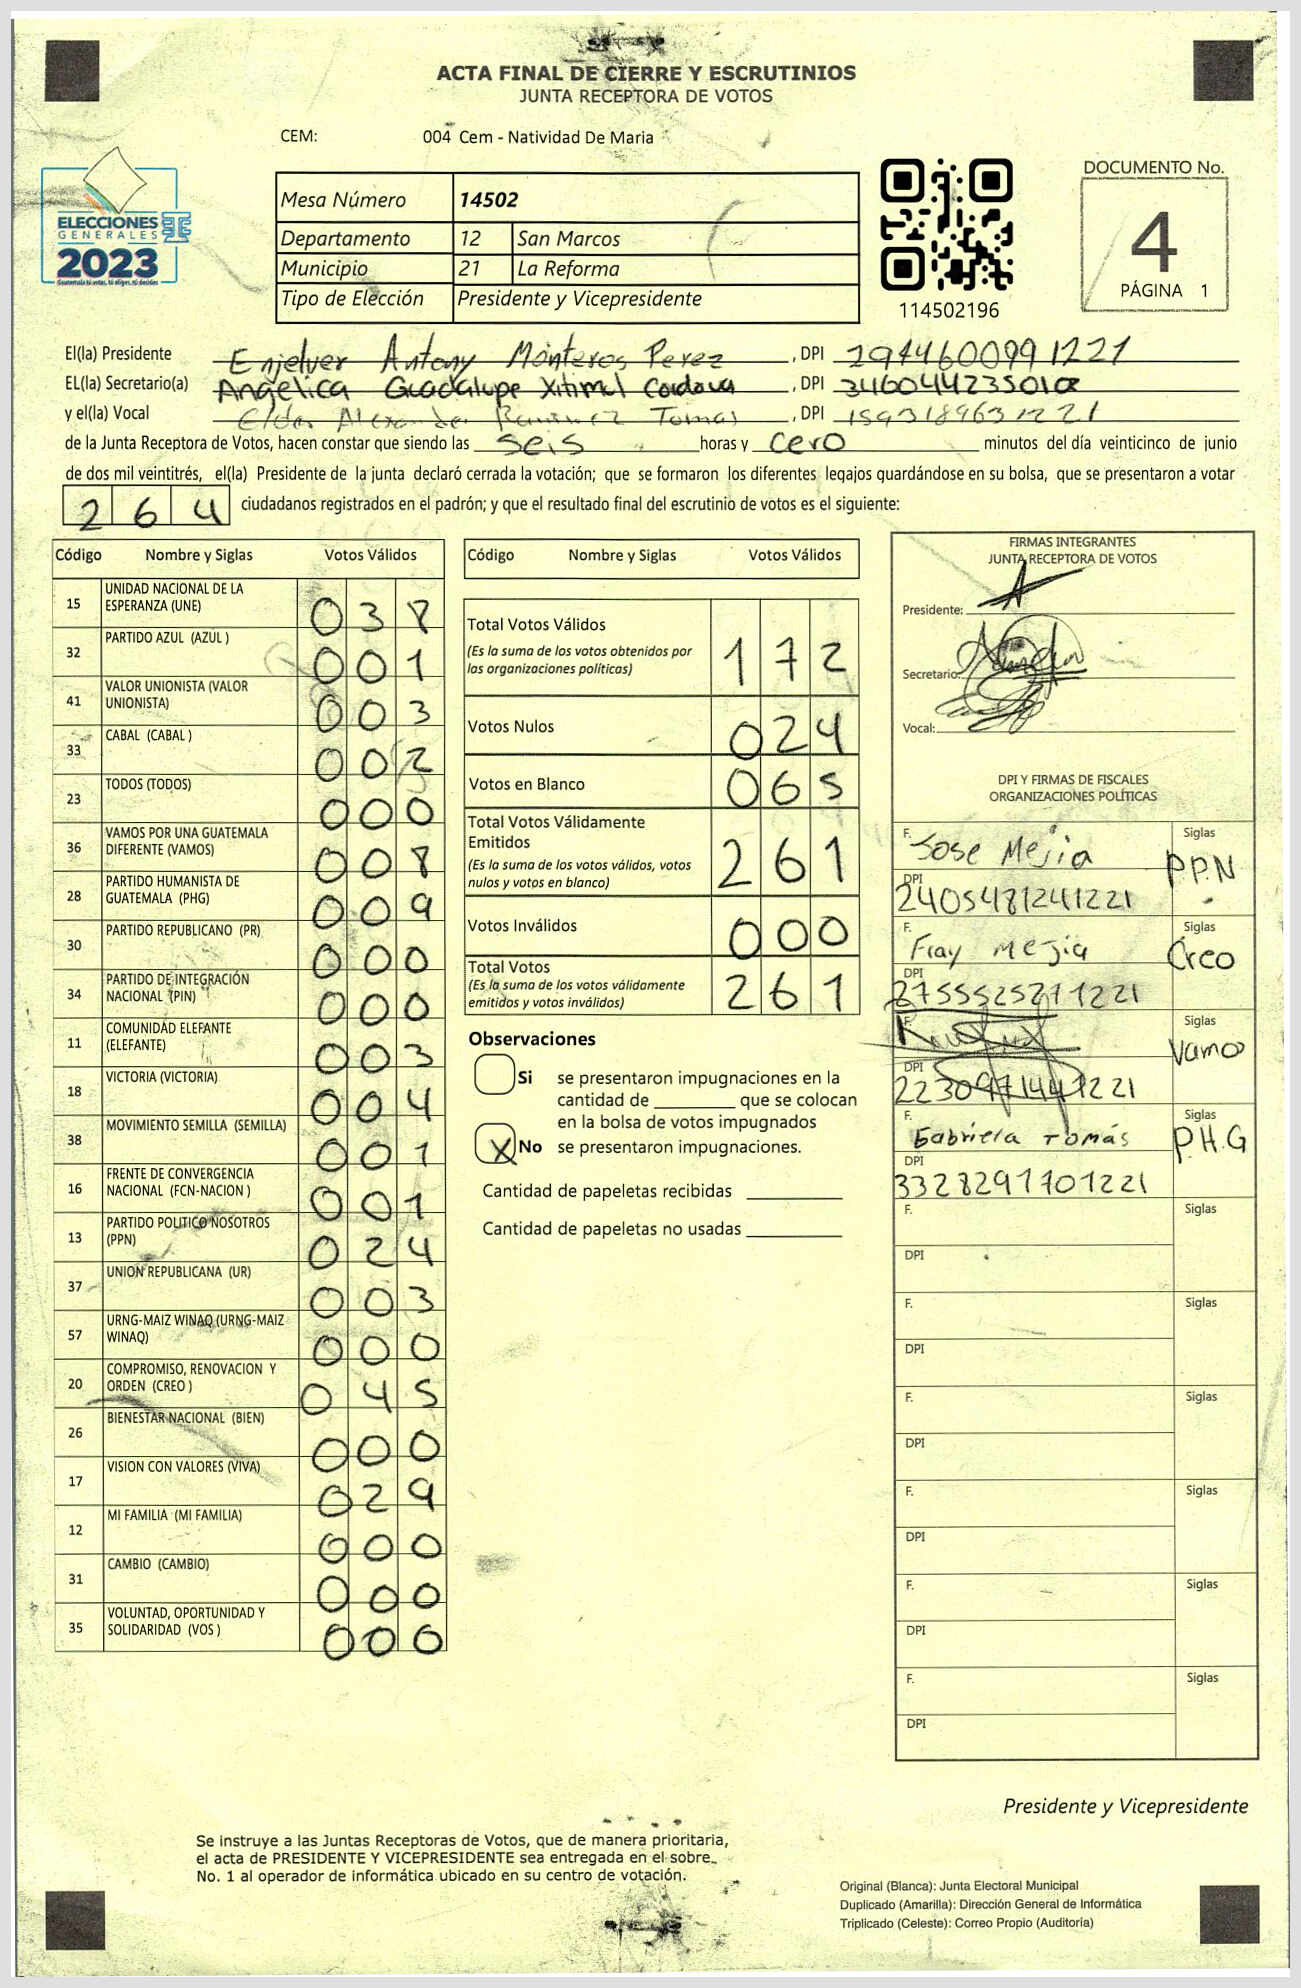 ACTA FINAL DE CIERRE Y ESCRUTINIOS
JUNTA RECEPTORA DE VOTOS
CEM: 004 Cem - Natividad De Maria
ELECCIONES
GENERALES
2023
Guatemala tú votas, tú eliges, tú decides
Mesa Número 14502
Departamento 12 San Marcos
Municipio 21 La Reforma
Tipo de Elección Presidente y Vicepresidente
114502196
DOCUMENTO No.
4
PÁGINA 1
El(la) Presidente Enjelver Antony Monteros Perez, DPI 2944600991221
EL(la) Secretario(a) Angélica Guadalupe Xitimul Cordova, DPI 3460442350108
y el(la) Vocal Elder Alexander Ramirez Tomas, DPI 1593189631221
de la Junta Receptora de Votos, hacen constar que siendo las seis horas y cero minutos del día veinticinco de junio
de dos mil veintitrés, el(la) Presidente de la junta declaró cerrada la votación; que se formaron los diferentes legajos guardándose en su bolsa, que se presentaron a votar
264 ciudadanos registrados en el padrón; y que el resultado final del escrutinio de votos es el siguiente:
Código Nombre y Siglas Votos Válidos
15 UNIDAD NACIONAL DE LA ESPERANZA (UNE) 038
32 PARTIDO AZUL (AZUL ) 001
41 VALOR UNIONISTA (VALOR UNIONISTA) 003
33 CABAL (CABAL ) 002
23 TODOS (TODOS) 000
36 VAMOS POR UNA GUATEMALA DIFERENTE (VAMOS) 008
28 PARTIDO HUMANISTA DE GUATEMALA (PHG) 009
30 PARTIDO REPUBLICANO (PR) 000
34 PARTIDO DE INTEGRACIÓN NACIONAL (PIN) 000
11 COMUNIDAD ELEFANTE (ELEFANTE) 003
18 VICTORIA (VICTORIA) 004
38 MOVIMIENTO SEMILLA (SEMILLA) 001
16 FRENTE DE CONVERGENCIA NACIONAL (FCN-NACION ) 001
13 PARTIDO POLITICO NOSOTROS (PPN) 024
37 UNION REPUBLICANA (UR) 003
57 URNG-MAIZ WINAQ (URNG-MAIZ WINAQ) 000
20 COMPROMISO, RENOVACION Y ORDEN (CREO ) 045
26 BIENESTAR NACIONAL (BIEN) 000
17 VISION CON VALORES (VIVA) 029
12 MI FAMILIA (MI FAMILIA) 000
31 CAMBIO (CAMBIO) 000
35 VOLUNTAD, OPORTUNIDAD Y SOLIDARIDAD (VOS ) 000
Código Nombre y Siglas Votos Válidos
Total Votos Válidos 172
(Es la suma de los votos obtenidos por
las organizaciones políticas)
Votos Nulos 024
Votos en Blanco 065
Total Votos Válidamente
Emitidos 261
(Es la suma de los votos válidos, votos
nulos y votos en blanco)
Votos Inválidos 000
Total Votos 261
(Es la suma de los votos válidamente
emitidos y votos inválidos)
Observaciones
Si se presentaron impugnaciones en la
cantidad de ________ que se colocan
en la bolsa de votos impugnados
X No se presentaron impugnaciones.
Cantidad de papeletas recibidas
Cantidad de papeletas no usadas
FIRMAS INTEGRANTES
JUNTA RECEPTORA DE VOTOS
Presidente:
Secretario:
Vocal:
DPI Y FIRMAS DE FISCALES
ORGANIZACIONES POLÍTICAS
F. Jose Mejia Siglas P.P.N.
DPI 2405481241221
F. Fray mejia Siglas Creo
DPI 2755525271221
F. Siglas Vamos
DPI 2230971441221
F. Gabriela Tomás Siglas P.H.G
DPI 3328291701221
F. Siglas
DPI
F. Siglas
DPI
F. Siglas
DPI
F. Siglas
DPI
F. Siglas
DPI
F. Siglas
DPI
Presidente y Vicepresidente
Se instruye a las Juntas Receptoras de Votos, que de manera prioritaria,
el acta de PRESIDENTE Y VICEPRESIDENTE sea entregada en el sobre
No. 1 al operador de informática ubicado en su centro de votación.
Original (Blanca): Junta Electoral Municipal
Duplicado (Amarilla): Dirección General de Informática
Triplicado (Celeste): Correo Propio (Auditoría)